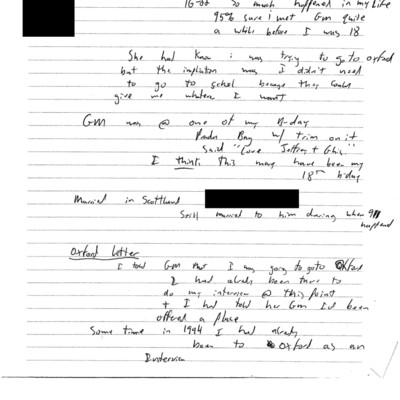 16-17 so much happened in my life
95% sure I met GM quite
a while before I was 18
She had know i was trying to go to oxford
but the implication was I didn't need
to go to school because they could
give me whatever I want
GM was @ one of my B-day
Prada Bag w/ trim on it
Said "Love Jeffrey + Ghis"
I think this may have been my
18th b'day
Married in Scottland
Still married to him during when 911
happened
Oxford letter
I told GM that I was going to goto Oxford
I had already been there to
do my interview @ this point
+ I had told her GM I'd been
offered a place
Some time in 1994 I had already
been to Oxford as an
Interview